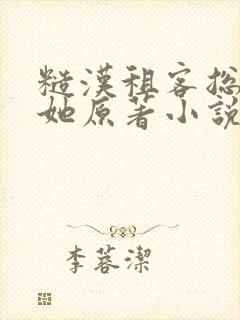 糙漢租客總
她原著小說
李蓉潔